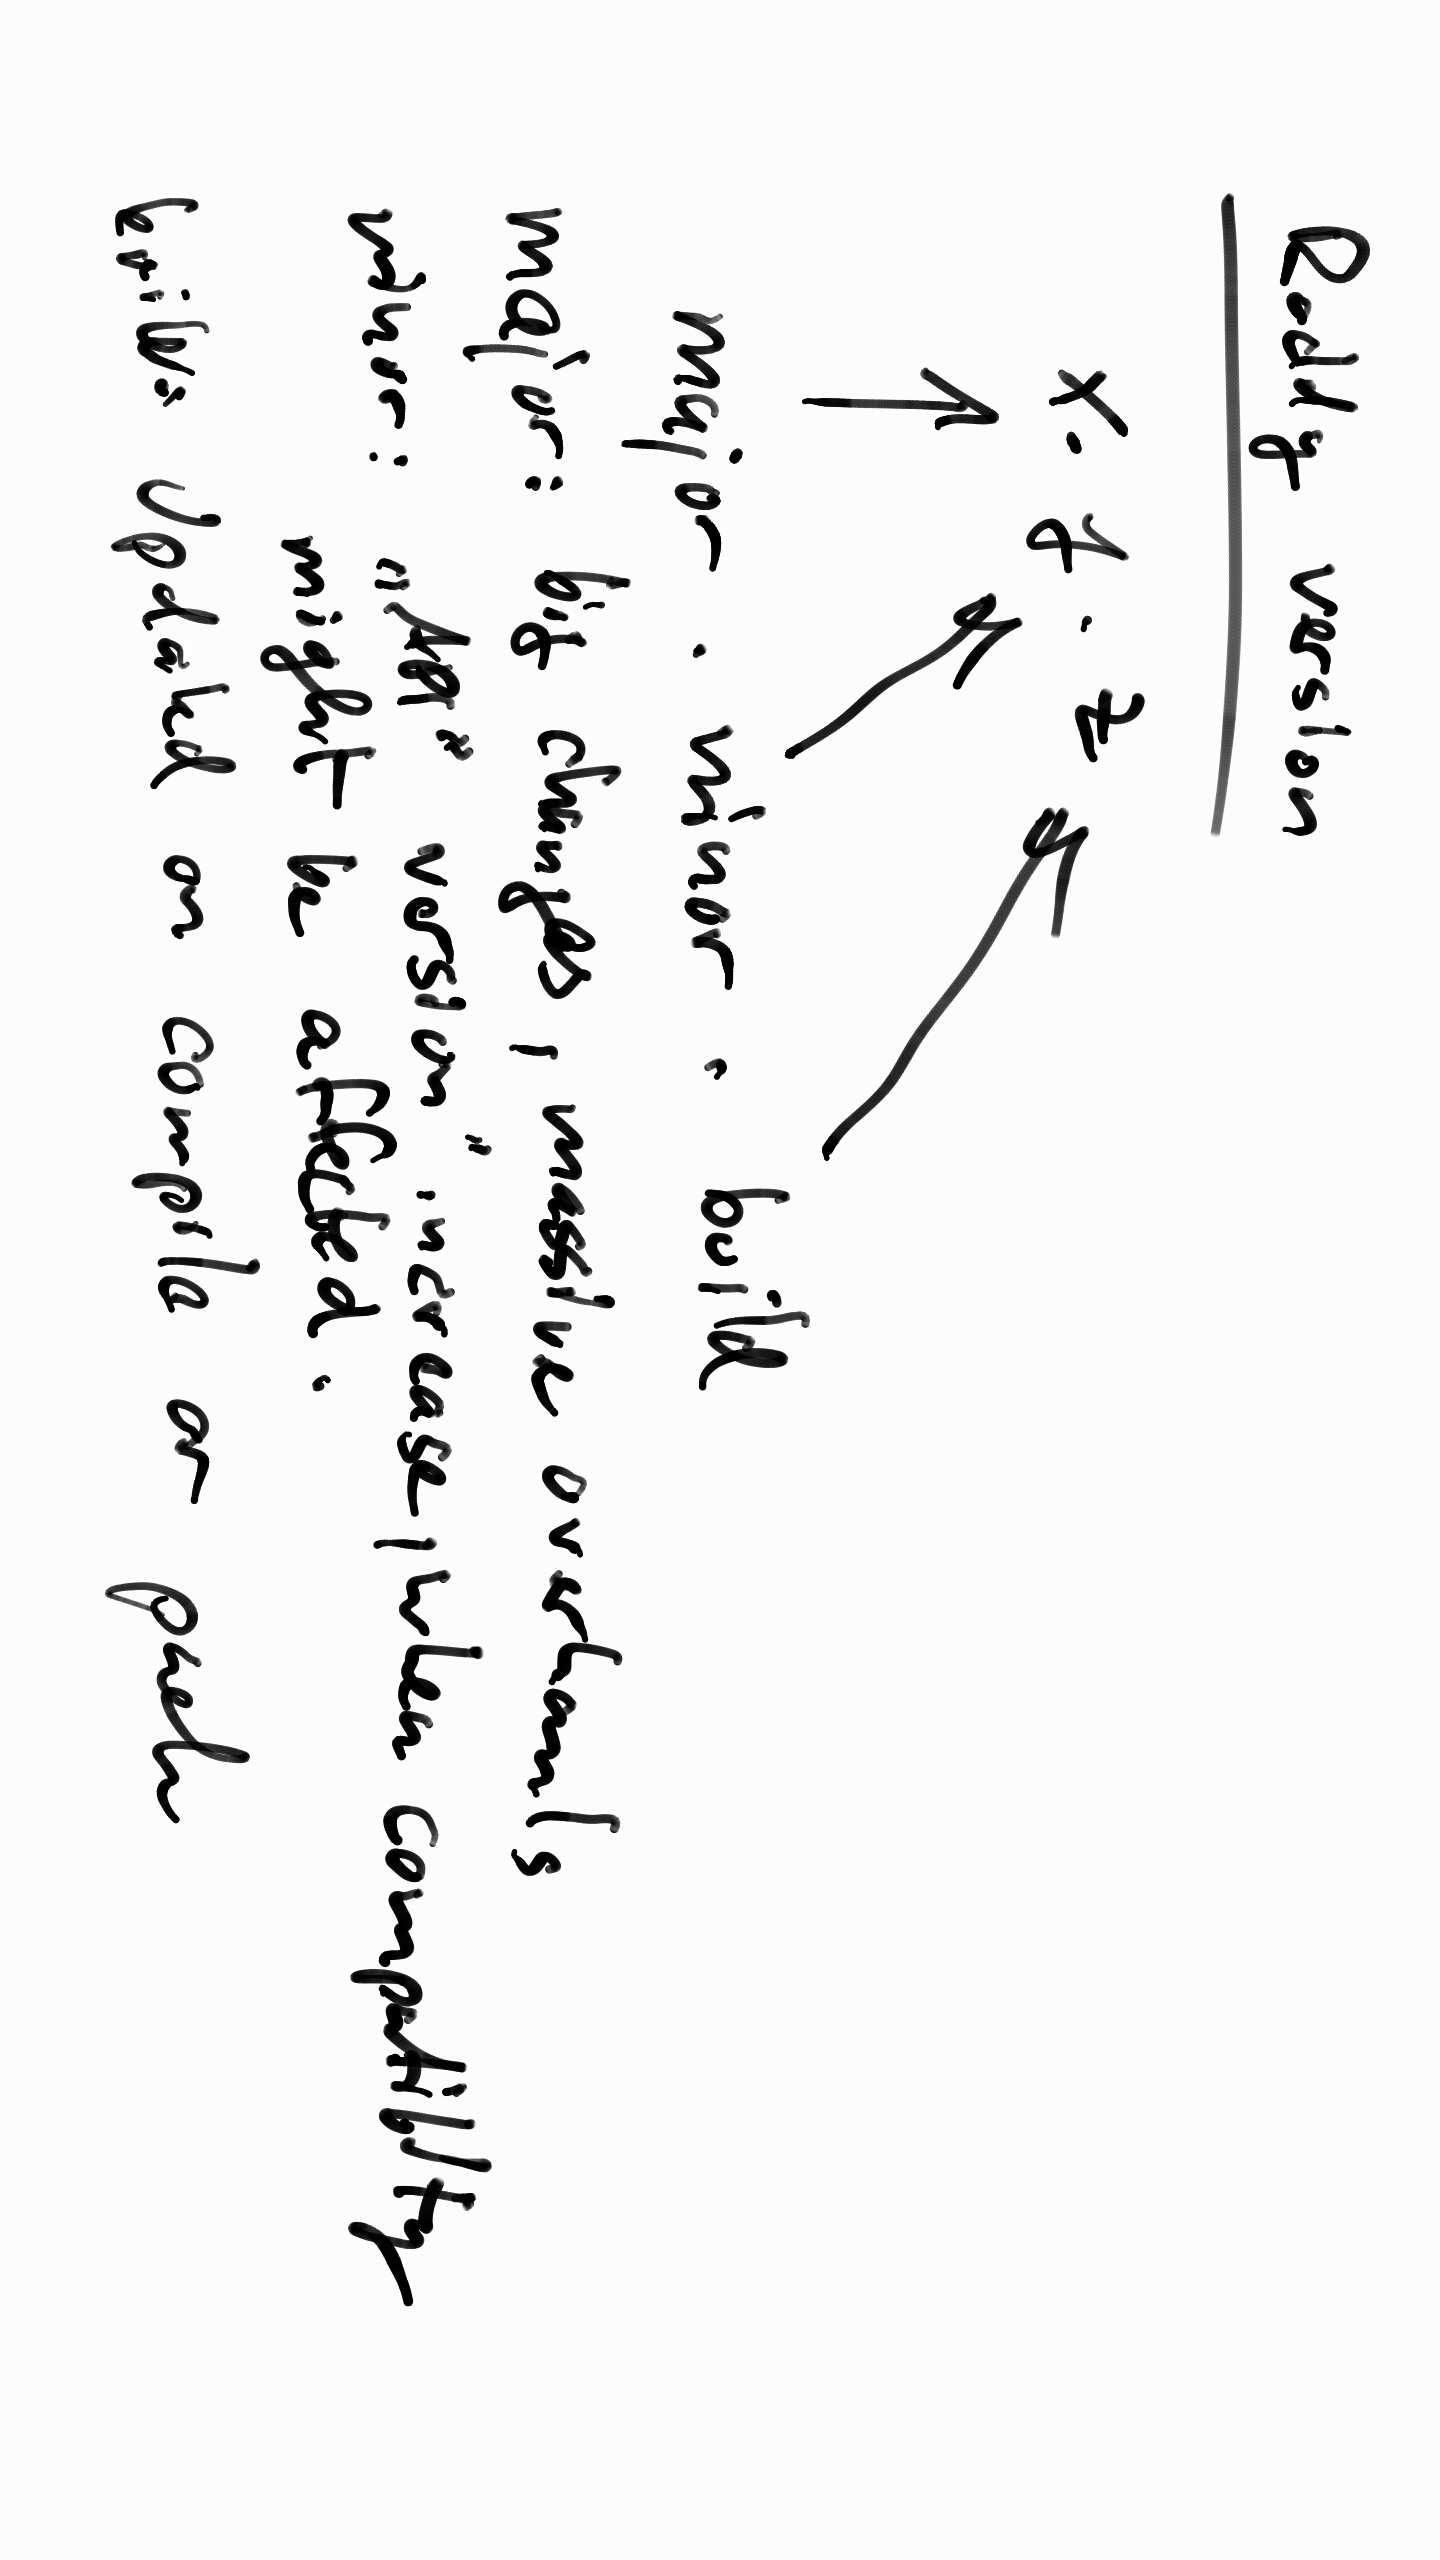 Roddy version
x. y. z
major . minor . build
major: big changes, massive overhauls
minor: " " version " increase, when compatibility
might be affected.
Updated on compile or push